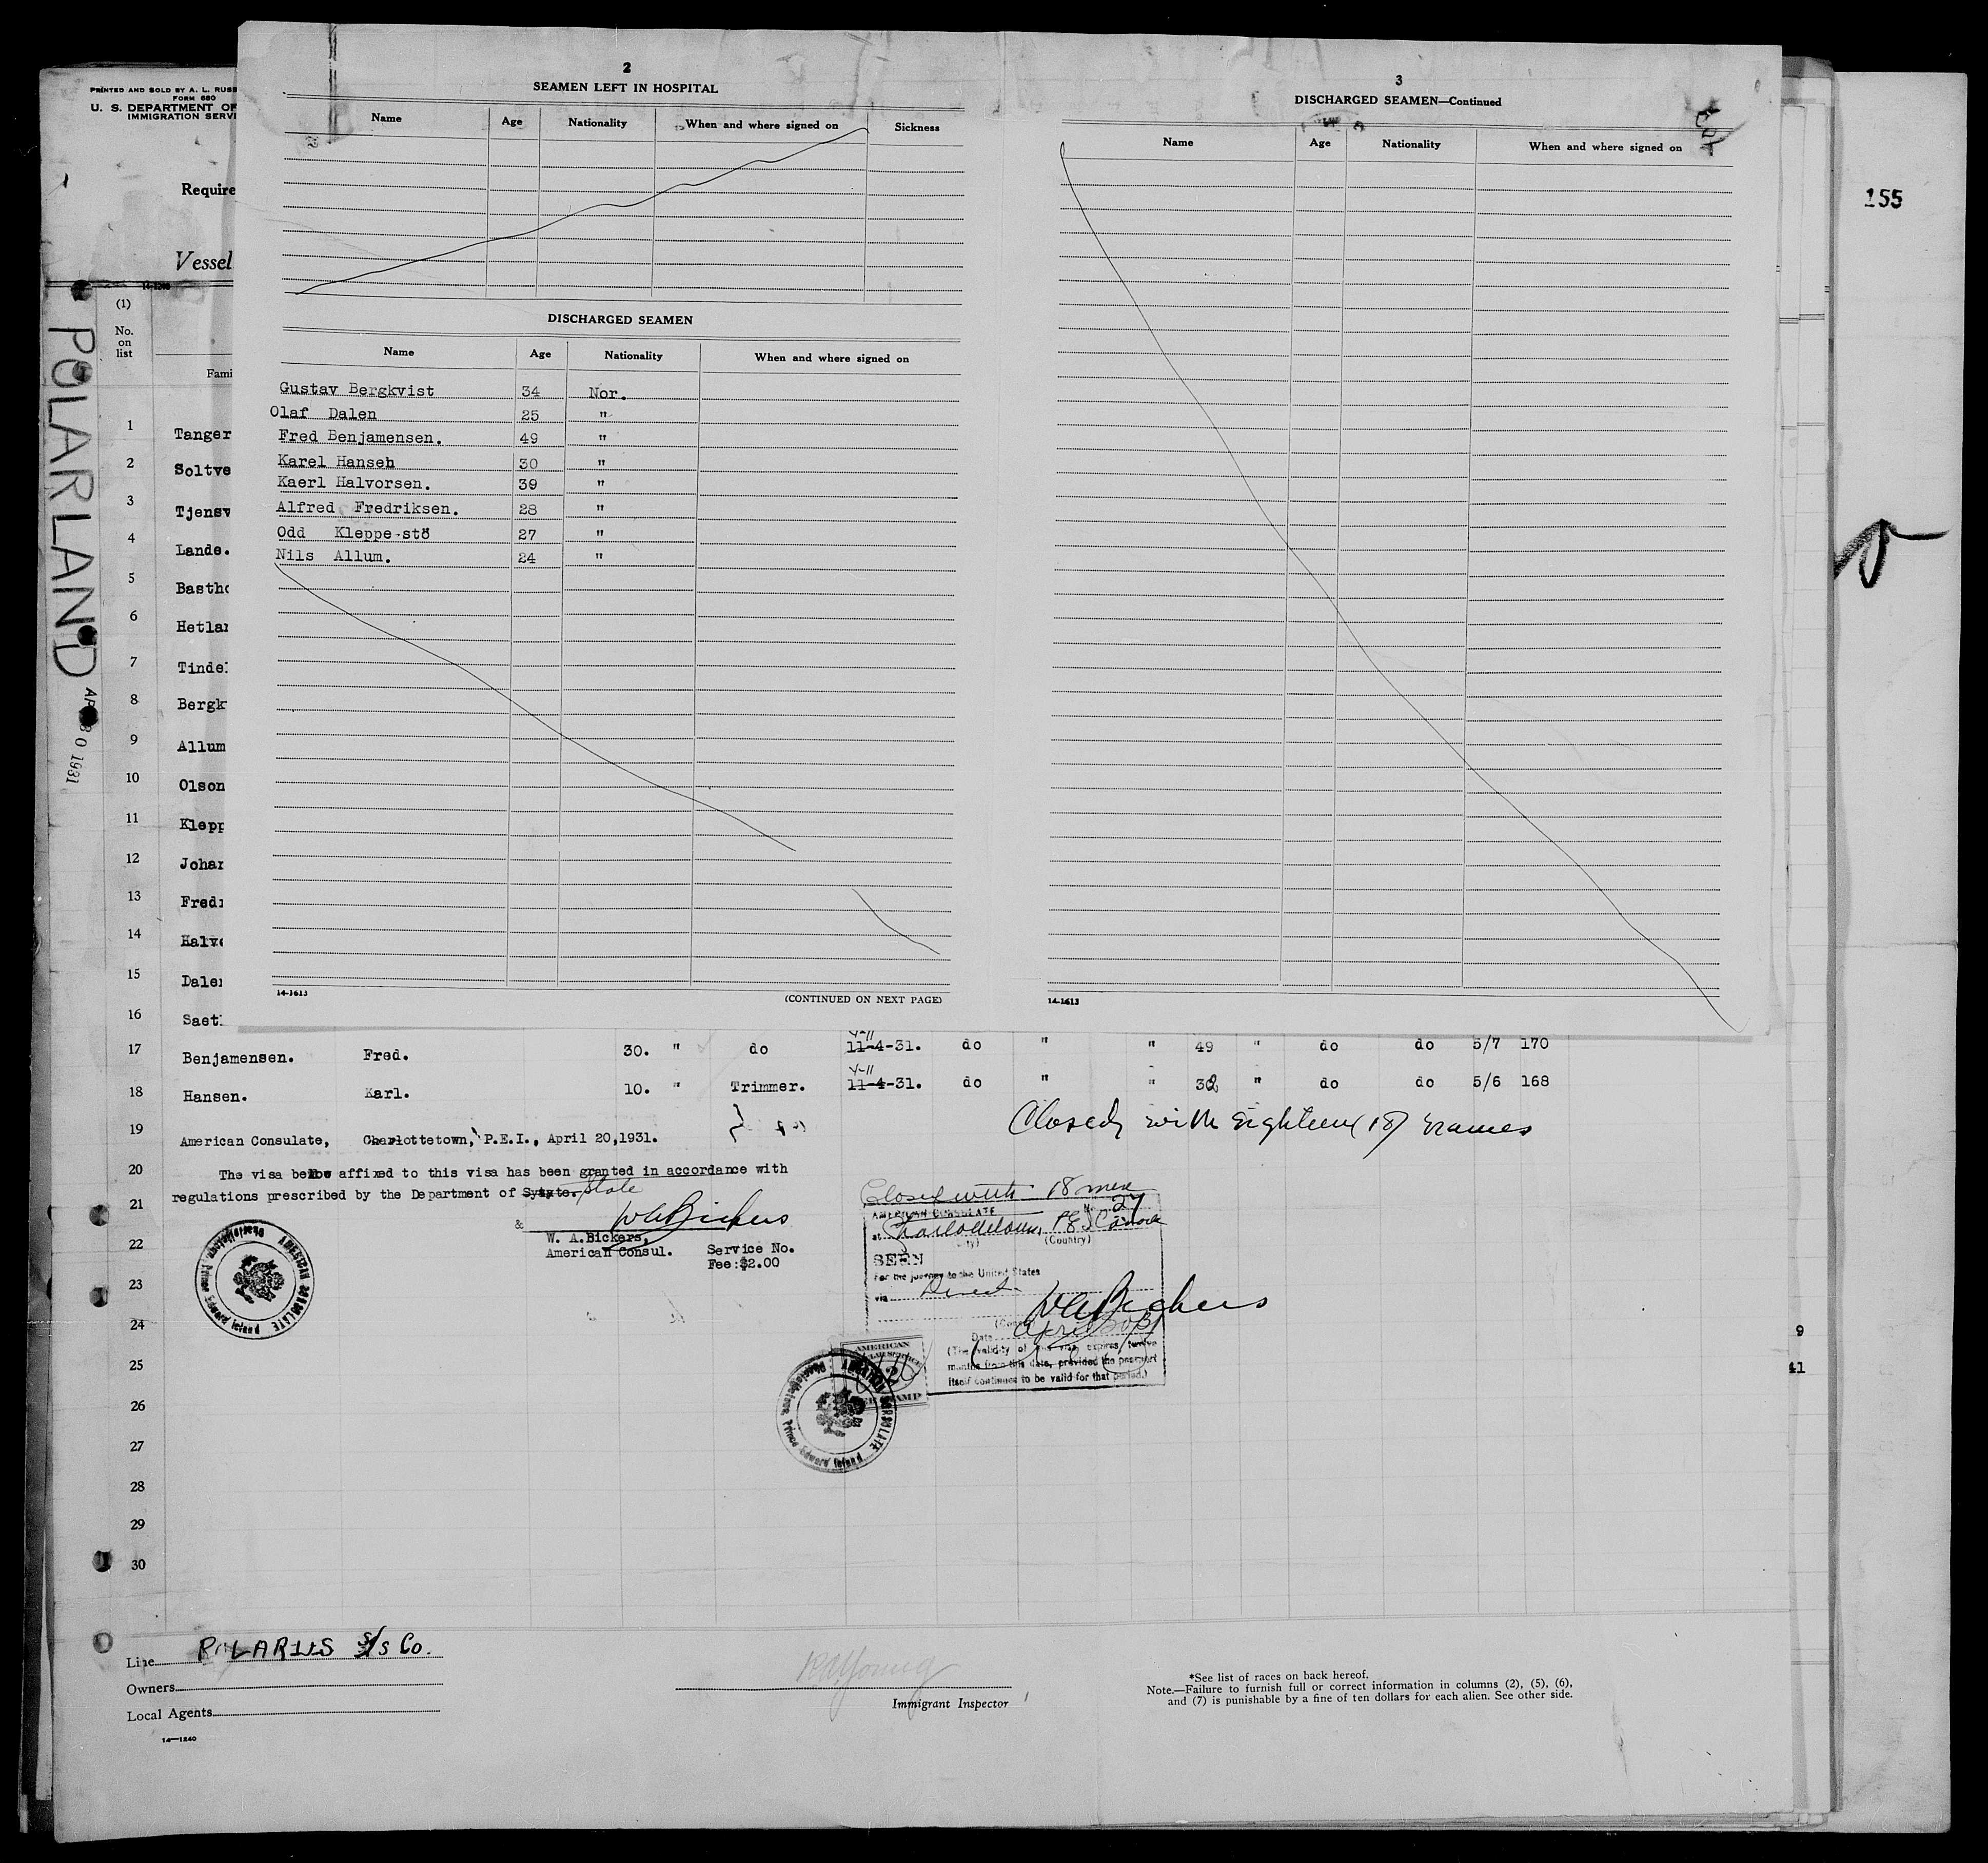 PRINTED AND SOLD BY A. L. RUSS
FORM 680
U. S. DEPARTMENT OF
IMMIGRATION SERVI
Require
Vessel
14-1240
(1)
No.
on
list
Fami
POLARLAND
AP 30 1931
1 Tanger
2 Soltve
3 Tjensv
4 Lande.
5 Bastho
6 Hetlan
7 Tinde
8 Bergk
9 Allum
10 Olson
11 Klepp
12 Johan
13 Fredr
14 Halve
15 Dalen
16 Saet
2
SEAMEN LEFT IN HOSPITAL
Name Age Nationality When and where signed on Sickness
DISCHARGED SEAMEN
Name Age Nationality When and where signed on
Gustav Bergkvist 34 Nor.
Olaf Dalen 25 "
Fred Benjamensen. 49 "
Karel Hanseh 30 "
Kaerl Halvorsen. 39 "
Alfred Fredriksen. 28 "
Odd Kleppe-stö 27 "
Nils Allum. 24 "
14-1613 (CONTINUED ON NEXT PAGE)
3
DISCHARGED SEAMEN—Continued
Name Age Nationality When and where signed on
14-1613
155
4-11
17 Benjamensen. Fred. 30. " do 11-4-31. do " " 49 " do do 5/7 170
4-11
18 Hansen. Karl. 10. " Trimmer. 11-4-31. do " " 32 " do do 5/6 168
19 American Consulate, Charlottetown, P.E.I., April 20,1931.
Closed with Eighteen (18) names
20 The visa below affixed to this visa has been granted in accordance with
21 regulations prescribed by the Department of Sytate. State
W A Bickers
&
W. A.Bickers,
American Consul.
Service No.
Fee:$2.00
22
23
24
25
26
27
28
29
30
AMERICAN CONSULATE
Charlottetown, Prince Edward Island
Closed with 18 men
AMERICAN CONSULATE
No. 27
at Charlottetown, P.E.I Canada
(City) (Country)
SEEN
For the journey to the United States
via Direct
W A Bickers
(Consul)
Date April 20 31
(The validity of this visa expires twelve
months from this date, provided the passport
itself continues to be valid for that period.)
AMERICAN
2
STAMP
AMERICAN CONSULATE
Charlottetown, Prince Edward Island
9
41
Line POLARIUS S/S Co.
Owners
Local Agents
14—1240
R A Young
Immigrant Inspector
*See list of races on back hereof.
Note.—Failure to furnish full or correct information in columns (2), (5), (6),
and (7) is punishable by a fine of ten dollars for each alien. See other side.